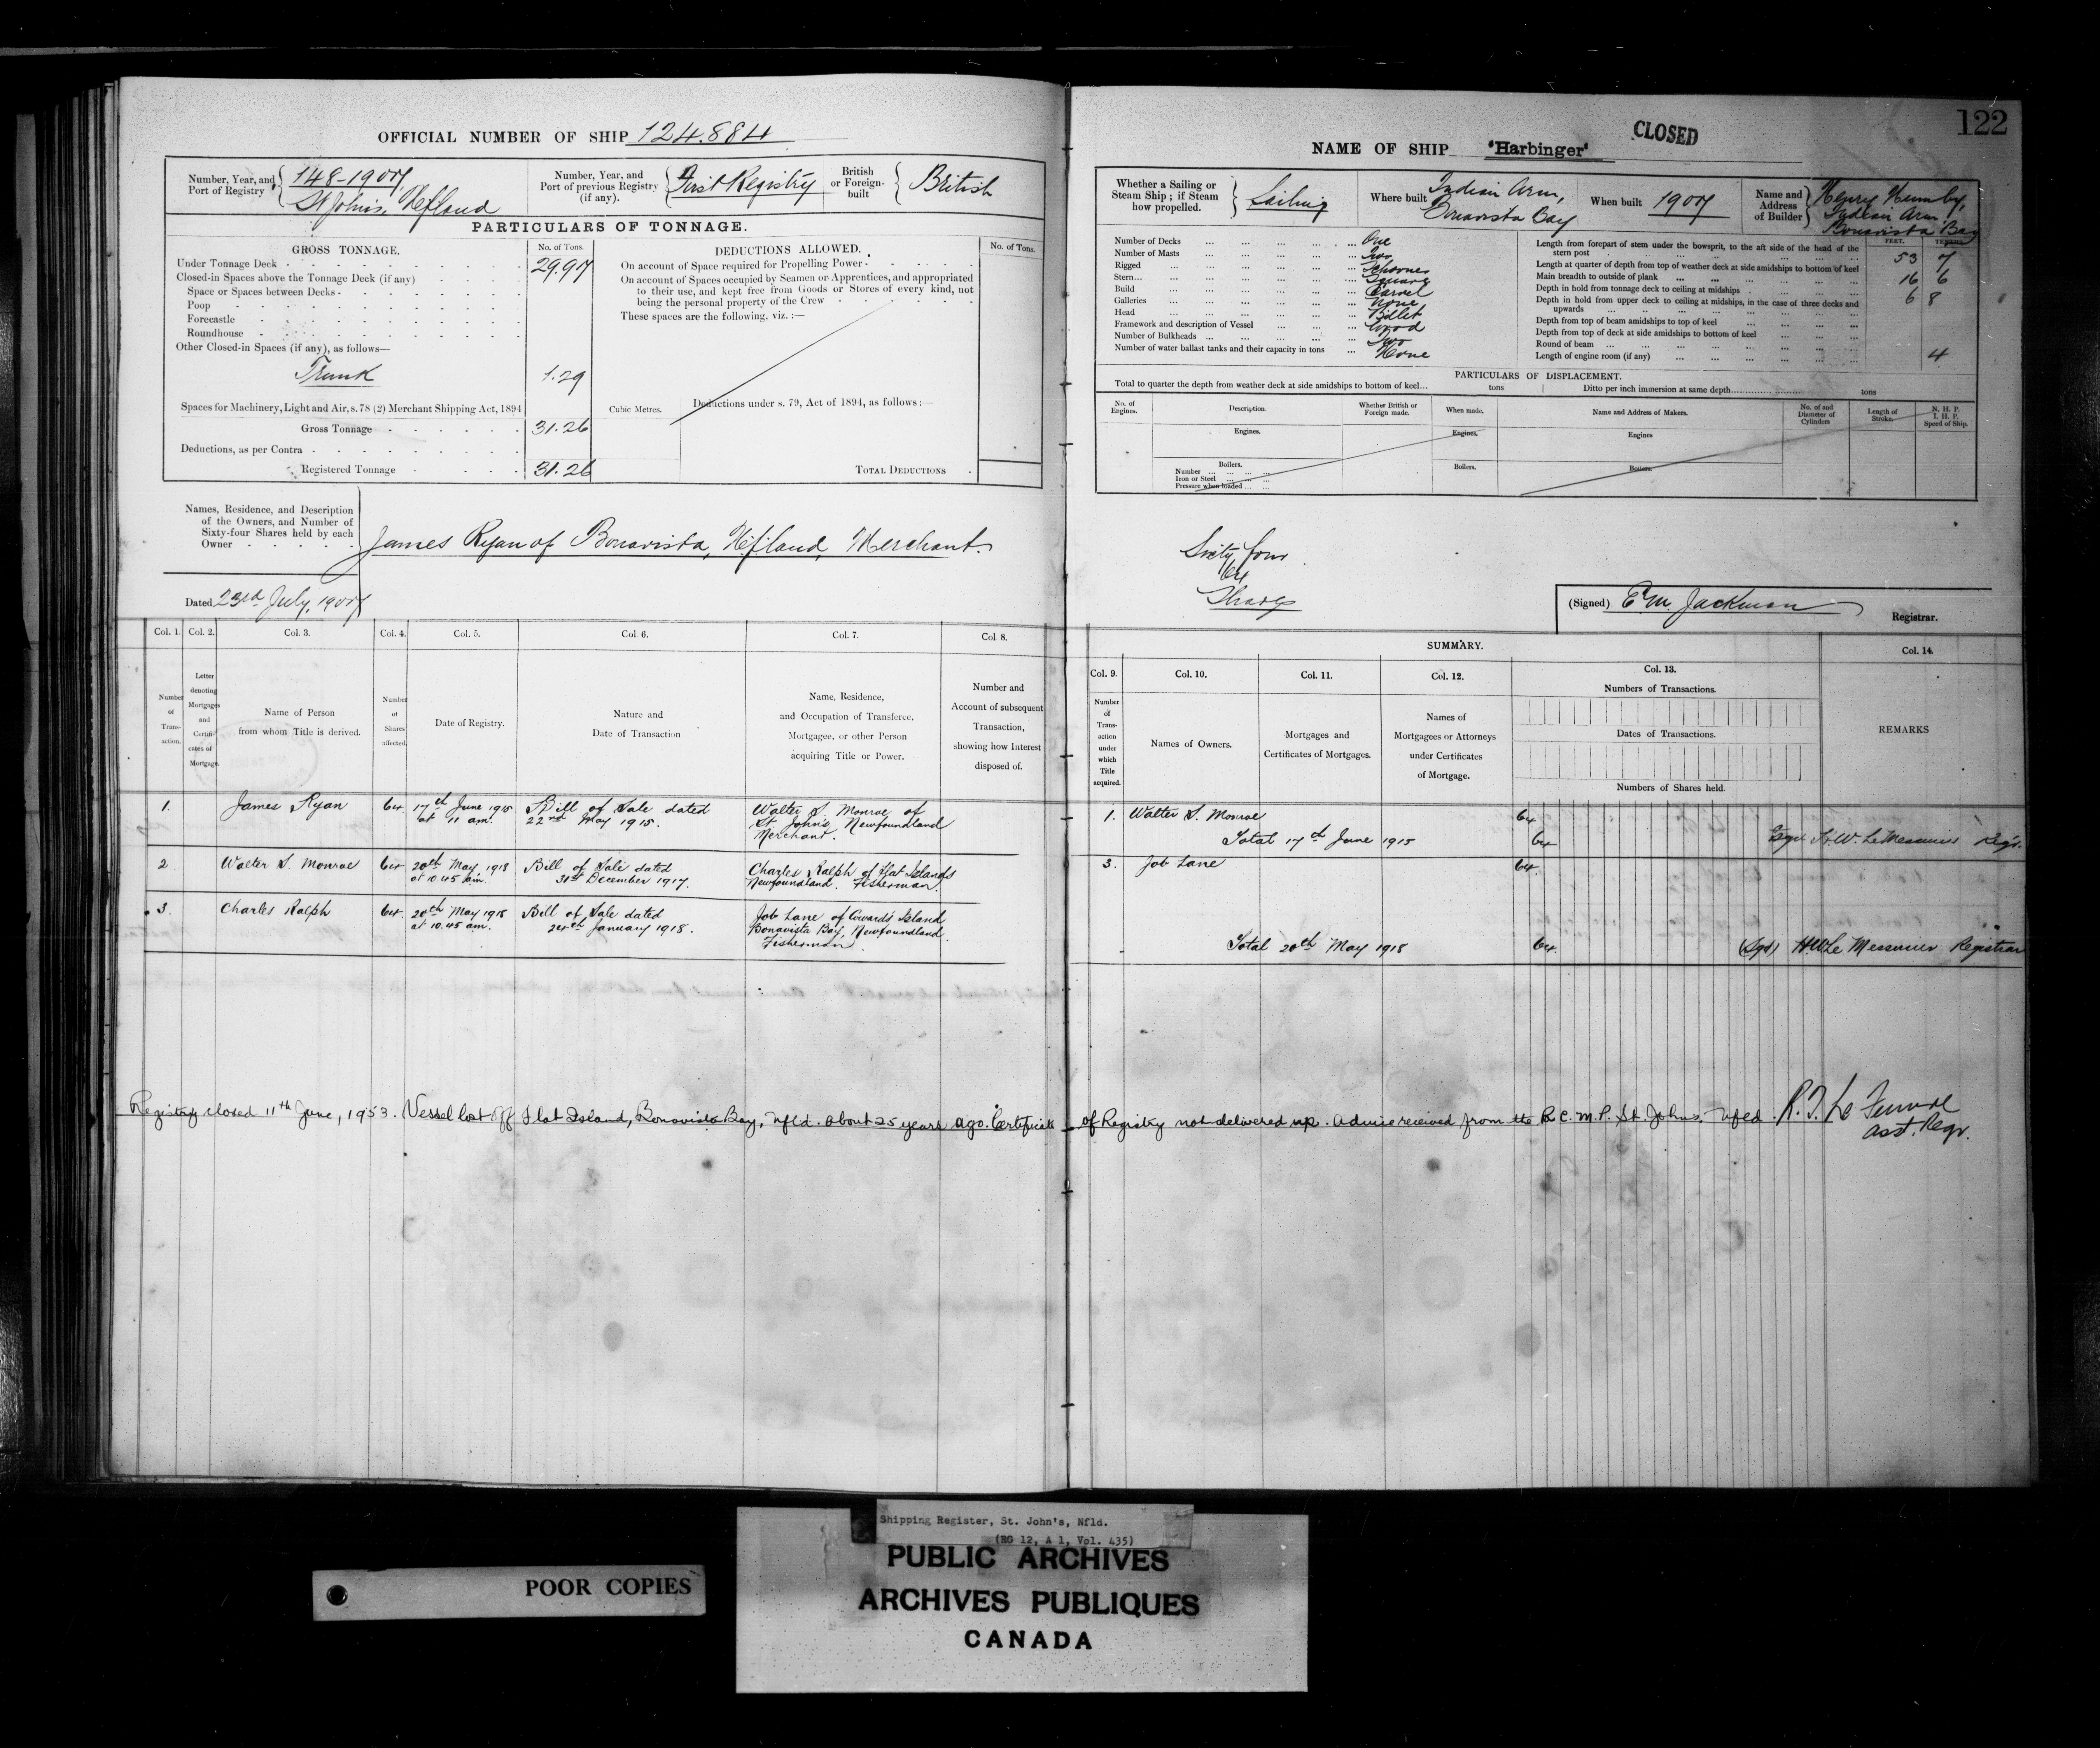 OFFICIAL NUMBER OF SHIP 124.884
Number, Year, and Port of Registry 148-1907, St Johns, Nfland
Number, Year, and Port of previous Registry (if any). First Registry
British or Foreign-built British
PARTICULARS OF TONNAGE.
GROSS TONNAGE. No. of Tons.
Under Tonnage Deck 29.97
Closed-in Spaces above the Tonnage Deck (if any)
Space or Spaces between Decks
Poop
Forecastle
Roundhouse
Other Closed-in Spaces (if any), as follows—
Trunk 1.29
Spaces for Machinery, Light and Air, s. 78 (2) Merchant Shipping Act, 1894
Gross Tonnage 31.26
Deductions, as per Contra
Registered Tonnage 31.26
DEDUCTIONS ALLOWED. No. of Tons.
On account of Space required for Propelling Power
On account of Spaces occupied by Seamen or Apprentices, and appropriated
to their use, and kept free from Goods or Stores of every kind, not
being the personal property of the Crew
These spaces are the following, viz. :—
Cubic Metres.
Deductions under s. 79, Act of 1894, as follows :—
TOTAL DEDUCTIONS
Names, Residence, and Description
of the Owners, and Number of
Sixty-four Shares held by each
Owner
James Ryan of Bonavista, Nfland, Merchant.
Dated 23rd July, 1907
Col. 1. Col. 2. Col. 3. Col. 4. Col. 5. Col 6. Col. 7. Col 8.
Number of Transaction.
Letter denoting Mortgages and Certificates of Mortgage.
Name of Person from whom Title is derived.
Number of Shares affected.
Date of Registry.
Nature and Date of Transaction
Name, Residence, and Occupation of Transferee, Mortgagee, or other Person acquiring Title or Power.
Number and Account of subsequent Transaction, showing how Interest disposed of.
1. James Ryan 64 17th June 1915 at 11 am. Bill of Sale dated 22nd May 1915. Walter S. Monroe of St. John's Newfoundland Merchant.
2 Walter S. Monroe 64 20th May, 1918 at 10.45 am. Bill of Sale dated 31st December 1917. Charles Ralph of Flat Islands Newfoundland. Fisherman.
3. Charles Ralph 64. 20th May 1918 at 10.45 am. Bill of Sale dated 24th January 1918. Job Lane of Cowards Island Bonavista Bay, Newfoundland. Fisherman
Registry closed 11th June, 1953. Vessel lost off Flat Island, Bonavista Bay, Nfld. about 25 years ago. Certificate
122
CLOSED
NAME OF SHIP "Harbinger"
Whether a Sailing or Steam Ship ; if Steam how propelled. Sailing
Where built Indian Arm, Bonavista Bay
When built 1907
Name and Address of Builder Henry Humby, Indian Arm, Bonavista Bay
Number of Decks One
Number of Masts Two
Rigged Schooner
Stern Square
Build Carvel
Galleries None
Head Billet
Framework and description of Vessel Wood
Number of Bulkheads Two
Number of water ballast tanks and their capacity in tons None
FEET. TENTHS.
Length from forepart of stem under the bowsprit, to the aft side of the head of the
stern post 53 7
Length at quarter of depth from top of weather deck at side amidships to bottom of keel
Main breadth to outside of plank 16 6
Depth in hold from tonnage deck to ceiling at midships 6 8
Depth in hold from upper deck to ceiling at midships, in the case of three decks and
upwards
Depth from top of beam amidships to top of keel
Depth from top of deck at side amidships to bottom of keel
Round of beam 4
Length of engine room (if any)
PARTICULARS OF DISPLACEMENT.
Total to quarter the depth from weather deck at side amidships to bottom of keel... tons Ditto per inch immersion at same depth tons
No. of Engines. Description. Whether British or Foreign made. When made. Name and Address of Makers. No. of and Diameter of Cylinders Length of Stroke. N. H. P. I. H. P. Speed of Ship.
Engines. Engines. Engines
Boilers. Boilers. Boilers.
Number
Iron or Steel
Pressure when loaded
Sixty four
64
Shares
(Signed) E M Jackman
Registrar.
SUMMARY.
Col. 9. Col. 10. Col. 11. Col. 12. Col. 13. Col. 14.
Number of Transaction under which Title acquired.
Names of Owners.
Mortgages and Certificates of Mortgages.
Names of Mortgagees or Attorneys under Certificates of Mortgage.
Numbers of Transactions.
Dates of Transactions.
Numbers of Shares held.
REMARKS
1. Walter S. Monroe 64
Total 17th June 1915 64 H.W. LeMessurier Regr.
3. Job Lane 64.
Total 20th May 1918 64. (Sgd) H.W. Le Messurier Registrar
of Registry not delivered up. Advice received from the R.C.M.P. St. Johns. Nfld.
Asst. Regr.
Shipping Register, St. John's, Nfld.
(RG 12, A 1, Vol. 435)
PUBLIC ARCHIVES
ARCHIVES PUBLIQUES
CANADA
POOR COPIES